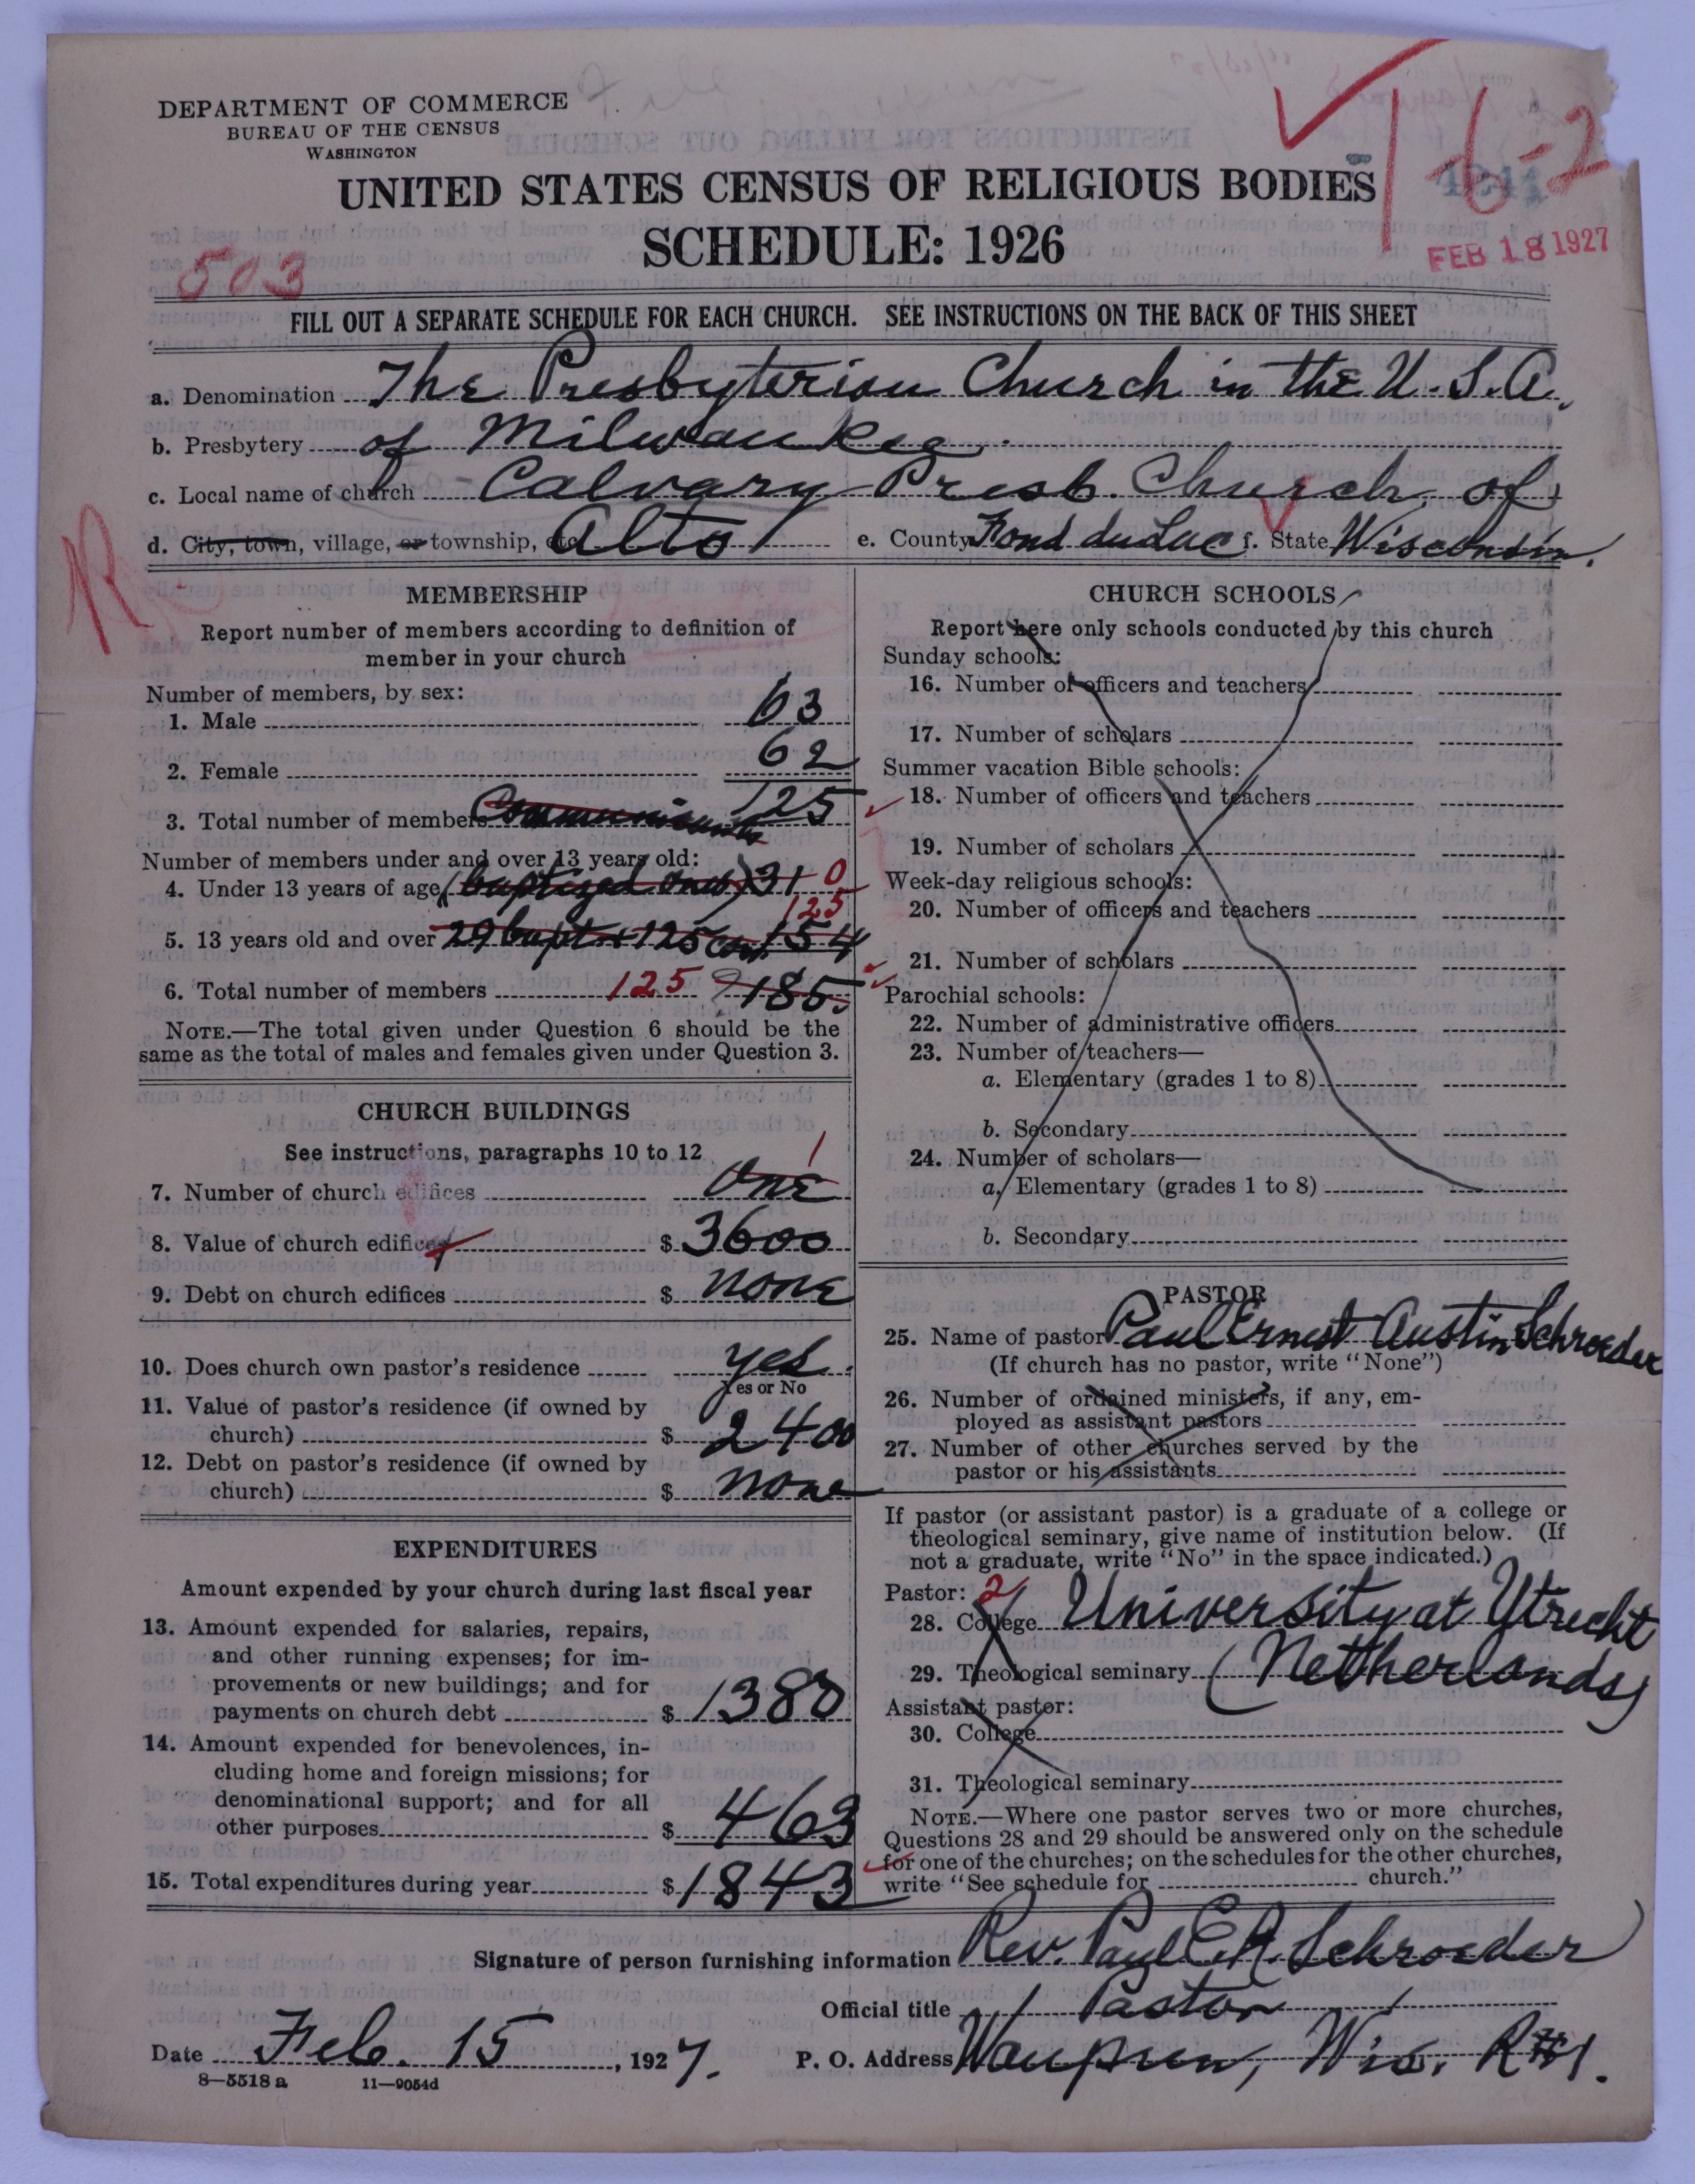 DEPARTMENT OF COMMERCE
BUREAU OF THE CENSUS
WASHINGTON
UNITED STATES CENSUS OF RELIGIOUS BODIES
SCHEDULE: 1926
16-2
FEB 18 1927
503
FILL OUT A SEPARATE SCHEDULE FOR EACH CHURCH. SEE INSTRUCTIONS ON THE BACK OF THIS SHEET
a. Denomination The Presbyterian Church in the U.S.A.
b. Presbytery of Milwaukee
c. Local name of church Calvary Presb. Church of
d. City, town, village, or township, etc. Alto e. County Fond du Lac f. State Wisconsin.
R
MEMBERSHIP
Report number of members according to definition of
member in your church
Number of members, by sex:
1. Male 63
2. Female 62
3. Total number of members Communicants 125
Number of members under and over 13 years old:
4. Under 13 years of age (baptized ones) 31 0
125
5. 13 years old and over 29 bapt. + 125 com. 154
6. Total number of members 125 185
NOTE.—The total given under Question 6 should be the
same as the total of males and females given under Question 3.
CHURCH BUILDINGS
See instructions, paragraphs 10 to 12
1
7. Number of church edifices One
8. Value of church edifices $ 3600
9. Debt on church edifices $ none
10. Does church own pastor's residence yes
Yes or No
11. Value of pastor's residence (if owned by
church) $ 2400
12. Debt on pastor's residence (if owned by
church) $ none
EXPENDITURES
Amount expended by your church during last fiscal year
13. Amount expended for salaries, repairs,
and other running expenses; for im-
provements or new buildings; and for
payments on church debt $ 1380
14. Amount expended for benevolences, in-
cluding home and foreign missions; for
denominational support; and for all
other purposes $ 463
15. Total expenditures during year $ 1843
CHURCH SCHOOLS
Report here only schools conducted by this church
Sunday schools:
16. Number of officers and teachers
17. Number of scholars
Summer vacation Bible schools:
18. Number of officers and teachers
19. Number of scholars
Week-day religious schools:
20. Number of officers and teachers
21. Number of scholars
Parochial schools:
22. Number of administrative officers
23. Number of teachers—
a. Elementary (grades 1 to 8)
b. Secondary
24. Number of scholars—
a. Elementary (grades 1 to 8)
b. Secondary
PASTOR
25. Name of pastor Paul Ernest Austin Schroeder
(If church has no pastor, write "None")
26. Number of ordained ministers, if any, em-
ployed as assistant pastors
27. Number of other churches served by the
pastor or his assistants
If pastor (or assistant pastor) is a graduate of a college or
theological seminary, give name of institution below. (If
not a graduate, write "No" in the space indicated.)
Pastor: 2
28. College University at Utrecht
29. Theological seminary (Netherlands)
Assistant pastor:
30. College
31. Theological seminary
NOTE.—Where one pastor serves two or more churches,
Questions 28 and 29 should be answered only on the schedule
for one of the churches; on the schedules for the other churches,
write "See schedule for church."
Signature of person furnishing information Rev. Paul E.A. Schroeder
Official title Pastor
Date Feb. 15, 1927. P. O. Address Waupun, Wis. R#1.
8—5518 a 11—9054d